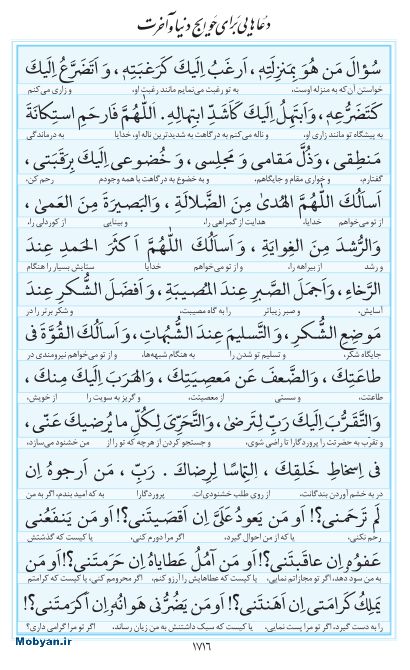 دعاهایی برای حوایج دنیا و آخرت
سُؤالَ مَن هُوَ بِمَنزِلَتِهِ، اَرغَبُ اِلَيكَ كَرَغبَتِهِ، وَ اَتَضَرَّعُ اِلَيكَ
خواستن آن‌که به منزله اوست، به تو رغبت می‌نمایم مانند رغبت او، و زاری می‌کنم
كَتَضَرُّعِهِ، وَ اَبتَهِلُ اِلَيكَ كَاَشَدِّ ابتِهالِهِ. اَللّٰهُمَّ فَارحَمِ استِكانَةَ
به پیشگاه تو مانند زاری او، و ناله می‌کنم به درگاهت به شدیدترین ناله او، خدایا به درماندگی
مَنطِقی، وَ ذُلَّ مَقامی وَ مَجلِسی، وَ خُضوعی اِلَيكَ بِرَقَبَتی،
گفتارم، و خواری مقام و جایگاهم، و به خضوع به درگاهت با همه وجودم رحم کن،
اَسأَلُكَ اللّٰهُمَّ الهُدىٰ مِنَ الضَّلالَةِ، وَ البَصيرَةَ مِنَ العَمىٰ،
از تو می‌خواهم خدایا، هدایت از گمراهی را، و بینایی از کوردلی را،
وَ الرُّشدَ مِنَ الغِوايَةِ، وَ اَسأَلُكَ اللّٰهُمَّ اَكثَرَ الحَمدِ عِندَ
و رشد از بیراهه را، و از تو می‌خواهم خدایا ستایش بسیار را هنگام
الرَّخاءِ، وَ اَجمَلَ الصَّبرِ عِندَ المُصيبَةِ، وَ اَفضَلَ الشُّكرِ عِندَ
آسایش، و صبر زیباتر را به گاه مصیبت، و شکر برتر را در
مَوضِعِ الشُّكرِ، وَ التَّسليمَ عِندَ الشُّبُهاتِ، وَ اَسأَلُكَ القُوَّةَ فی
جایگاه شکر، و تسلیم تو شدن را به هنگام شبهه‌ها، و از تو می‌خواهم نیرومندی در
طاعَتِكَ، وَ الضَّعفَ عَن مَعصِيَتِكَ، وَ الهَرَبَ اِلَيكَ مِنكَ،
طاعتت، و سستی از معصیتت، و گریز به سویت را از خویش،
وَ التَّقَرُّبَ اِلَيكَ رَبِّ لِتَرضىٰ، وَ التَّحَرِّیَ لِكُلِّ ما يُرضيكَ عَنّی،
و تقرب به حضرتت را پروردگارا تا راضی شوی، و جستجو کردن از هرچه که تو را از من خشنود می‌سازد،
فی اِسخاطِ خَلقِكَ، اِلتِماسًا لِرِضاكَ . رَبِّ ، مَن اَرجوهُ اِن
در به خشم آوردن بندگانت، از روی طلب خشنودی‌ات. پروردگارا به که امید بندم، اگر به من
لَم تَرحَمنی؟! اَو مَن يَعودُ عَلَیَّ اِن اَقصَيتَنی؟! اَو مَن يَنفَعُنی
رحم نکنی، یا که از من احوال گیرد، اگر مرا دورم کنی، یا کیست که گذشتش
عَفوُهُ اِن عاقَبتَنی؟! اَو مَن آمُلُ عَطاياهُ اِن حَرَمتَنی؟! اَو مَن
به من سود دهد، اگر تو مجازاتم نمایی، یا کیست که عطاهایش را آرزو کنم، اگر محرومم کنی، یا کیست که کرامتم
يَملِكُ كَرامَتی اِن اَهَنتَنی؟! اَو مَن يَضُرُّنی هَوانُهُ اِن اَكرَمتَنی؟!
را به دست گیرد، اگر تو مرا پست نمایی، یا کیست که سبک داشتنش به من زیان رساند، اگر تو مرا گرامی داری؟
۱۷۱۶
Mobyan.ir